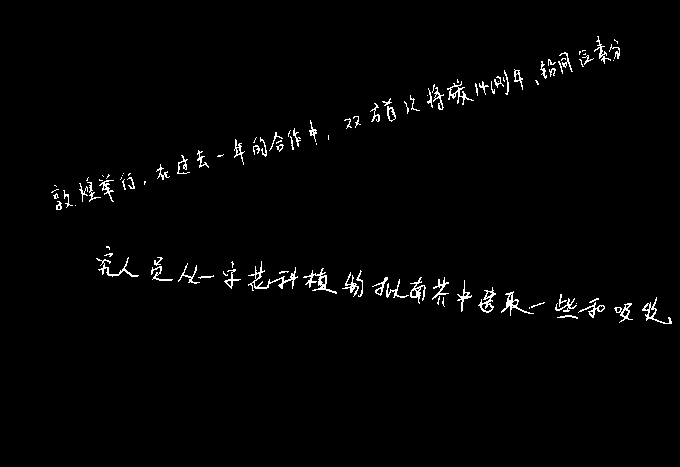 敦煌举行,在过去一年的合作中,双方首次将碳14测年、铅同位素分
究人员从一字花科植物拟南芥中选取一些和吸收